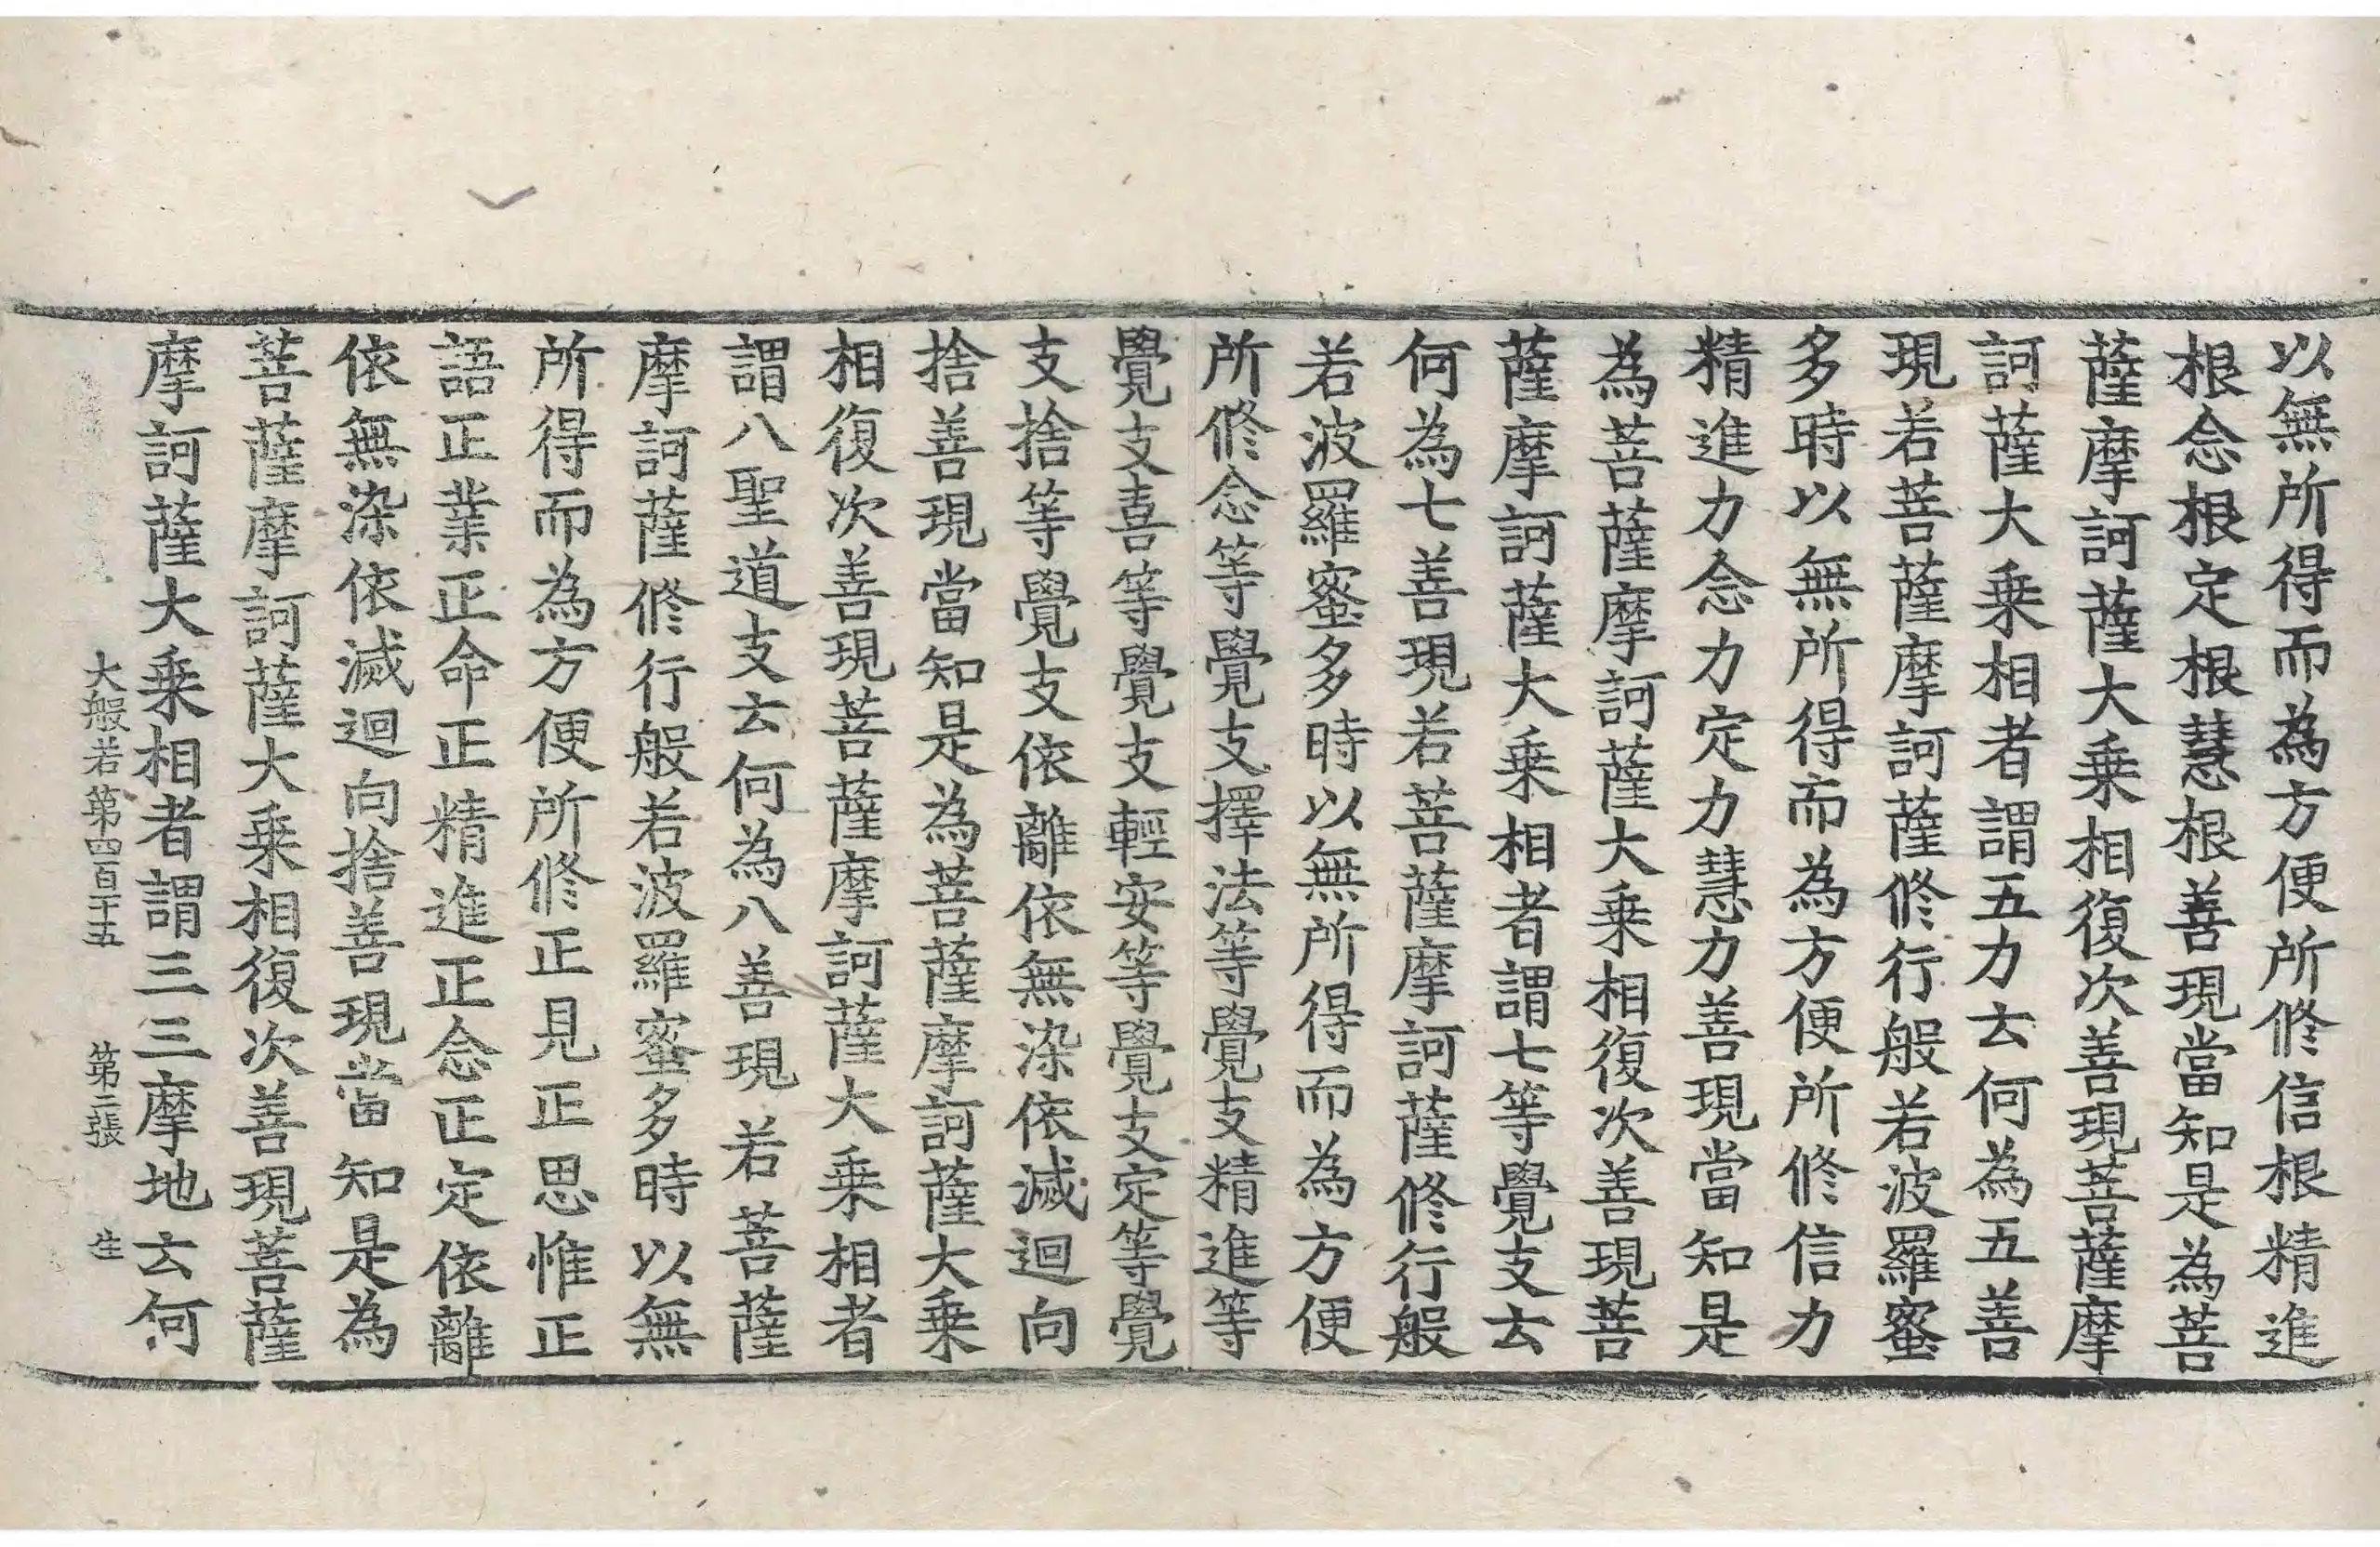 以無所得而為方便所修信根精進
根念根定根慧根善現當知是為菩
薩摩訶薩大乗相復次善現菩薩摩
訶薩大乗相者謂五力云何為五善
現若菩薩摩訶薩修行般若波羅蜜
多時以無所得而為方便所修信力
精進力念力定力慧力善現當知是
為菩薩摩訶薩大乗相復次善現菩
薩摩訶薩大乗相者謂七等覺支云
何為七善現若菩薩摩訶薩修行般
若波羅蜜多時以無所得而為方便
所修念等覺支擇法等覺支精進等
覺支喜等覺支輕安等覺支定等覺
支捨等覺支依離依無染依滅迴向
捨善現當知是為菩薩摩訶薩大乗
相復次善現菩薩摩訶薩大乗相者
謂八聖道支云何為八善現若菩薩
摩訶薩修行般若波羅蜜多時以無
所得而為方便所修正見正思惟正
語正業正命正精進正念正定依離
依無染依滅迴向捨善現當知是為
菩薩摩訶薩大乗相復次善現菩薩
摩訶薩大乗相者謂三三摩地云何
大般若第四百十五 第二張